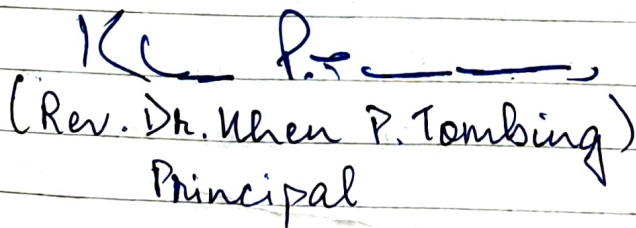 (Rev. Dr. Khen P. Tombing)
Principal